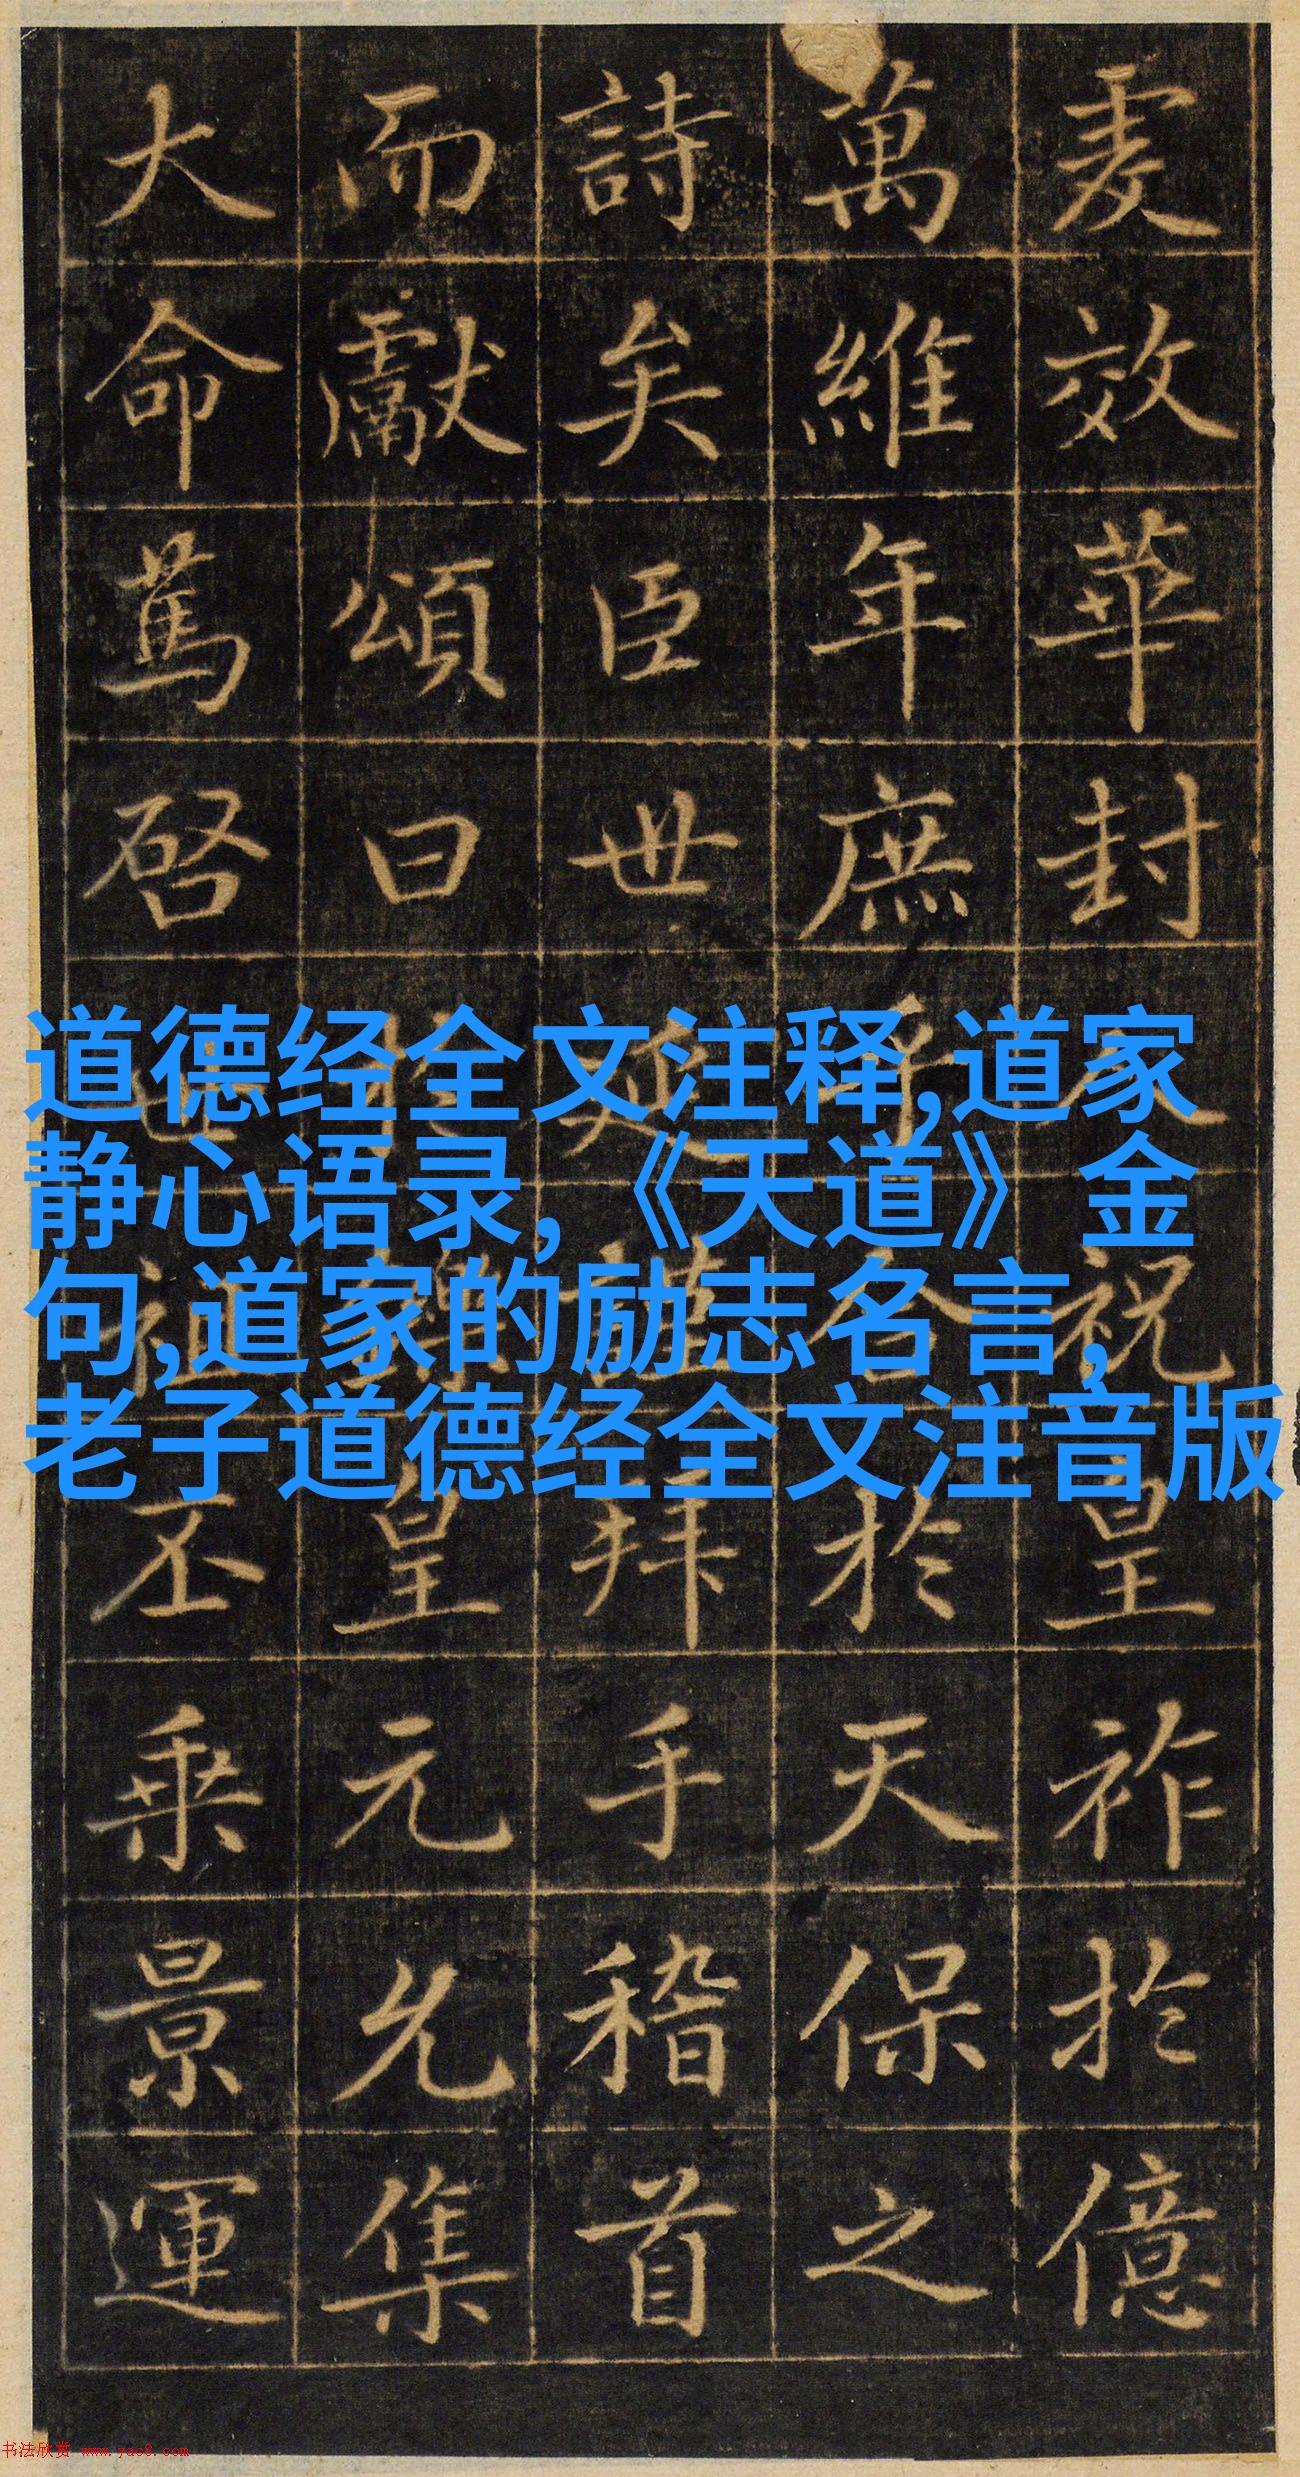 效華封祝皇祚於億
萬維年庶合於天保之
詩矣臣世延謹拜手稽首
而獻頌曰於鑠皇元允集
大命篤啓世祖丕乘景運
道德经全文注释,道家
静心语录,《天道》金
句,道家的励志名言,
老子道德经全文注音版
书法欣赏 www.yac8.com